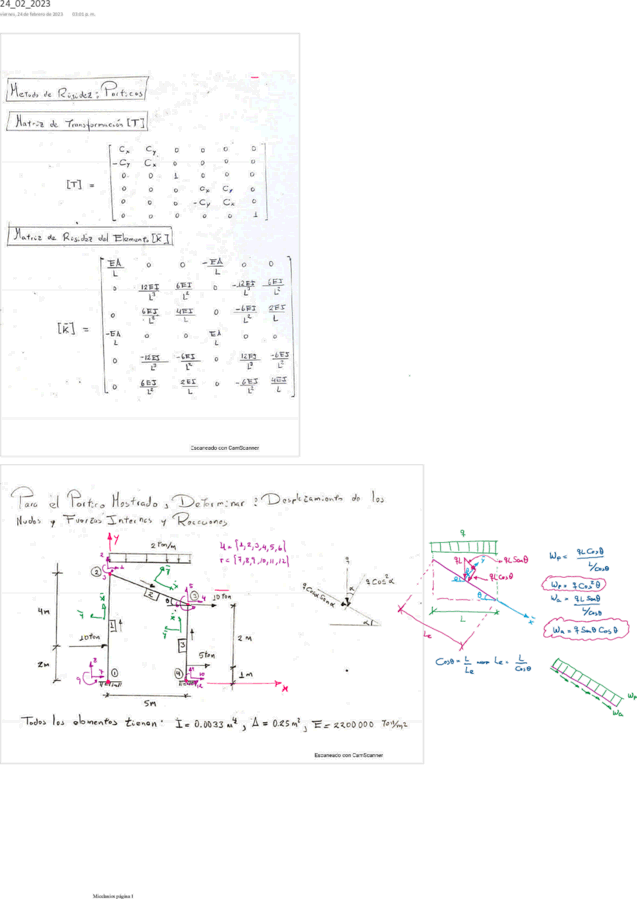 24_02_2023
viernes, 24 de febrero de 2023 03:01 p. m.
Metodo de Rigidez: Porticos
Matriz de Transformación [T]
[T] =
Cx Cy 0 0 0 0
-Cy Cx 0 0 0 0
0 0 1 0 0 0
0 0 0 Cx Cy 0
0 0 0 -Cy Cx 0
0 0 0 0 0 1
Matriz de Rigidez del Elemento [K]
[K] =
EA/L 0 0 -EA/L 0 0
0 12EI/L³ 6EI/L² 0 -12EI/L³ 6EI/L²
0 6EI/L² 4EI/L 0 -6EI/L² 2EI/L
-EA/L 0 0 EA/L 0 0
0 -12EI/L³ -6EI/L² 0 12EI/L³ -6EI/L²
0 6EI/L² 2EI/L 0 -6EI/L² 4EI/L
Escaneado con CamScanner
Para el Portico Mostrado, Determinar: Desplazamiento de los
Nudos y Fuerzas Internas y Reacciones
y
2 Ton/m
u = [1,2,3,4,5,6]
r = [7,8,9,10,11,12]
10 Ton
4m
2m
10 Ton
5 Ton
2 m
1 m
5m
x
q
q Cos²α
q Cosα Senα
α
q
qL
qL Senθ
qL Cosθ
θ
L
Le
x'
Cosθ = L/Le Le = L/Cosθ
Wp = qL Cosθ / L/Cosθ
Wp = q Cos²θ
Wa = qL Senθ / L/Cosθ
Wa = q Senθ Cosθ
Wp
Wa
Todos los elementos tienen: I = 0.0033 m⁴, A = 0.25 m², E = 2200000 Ton/m²
Escaneado con CamScanner
Miscelanios página 1